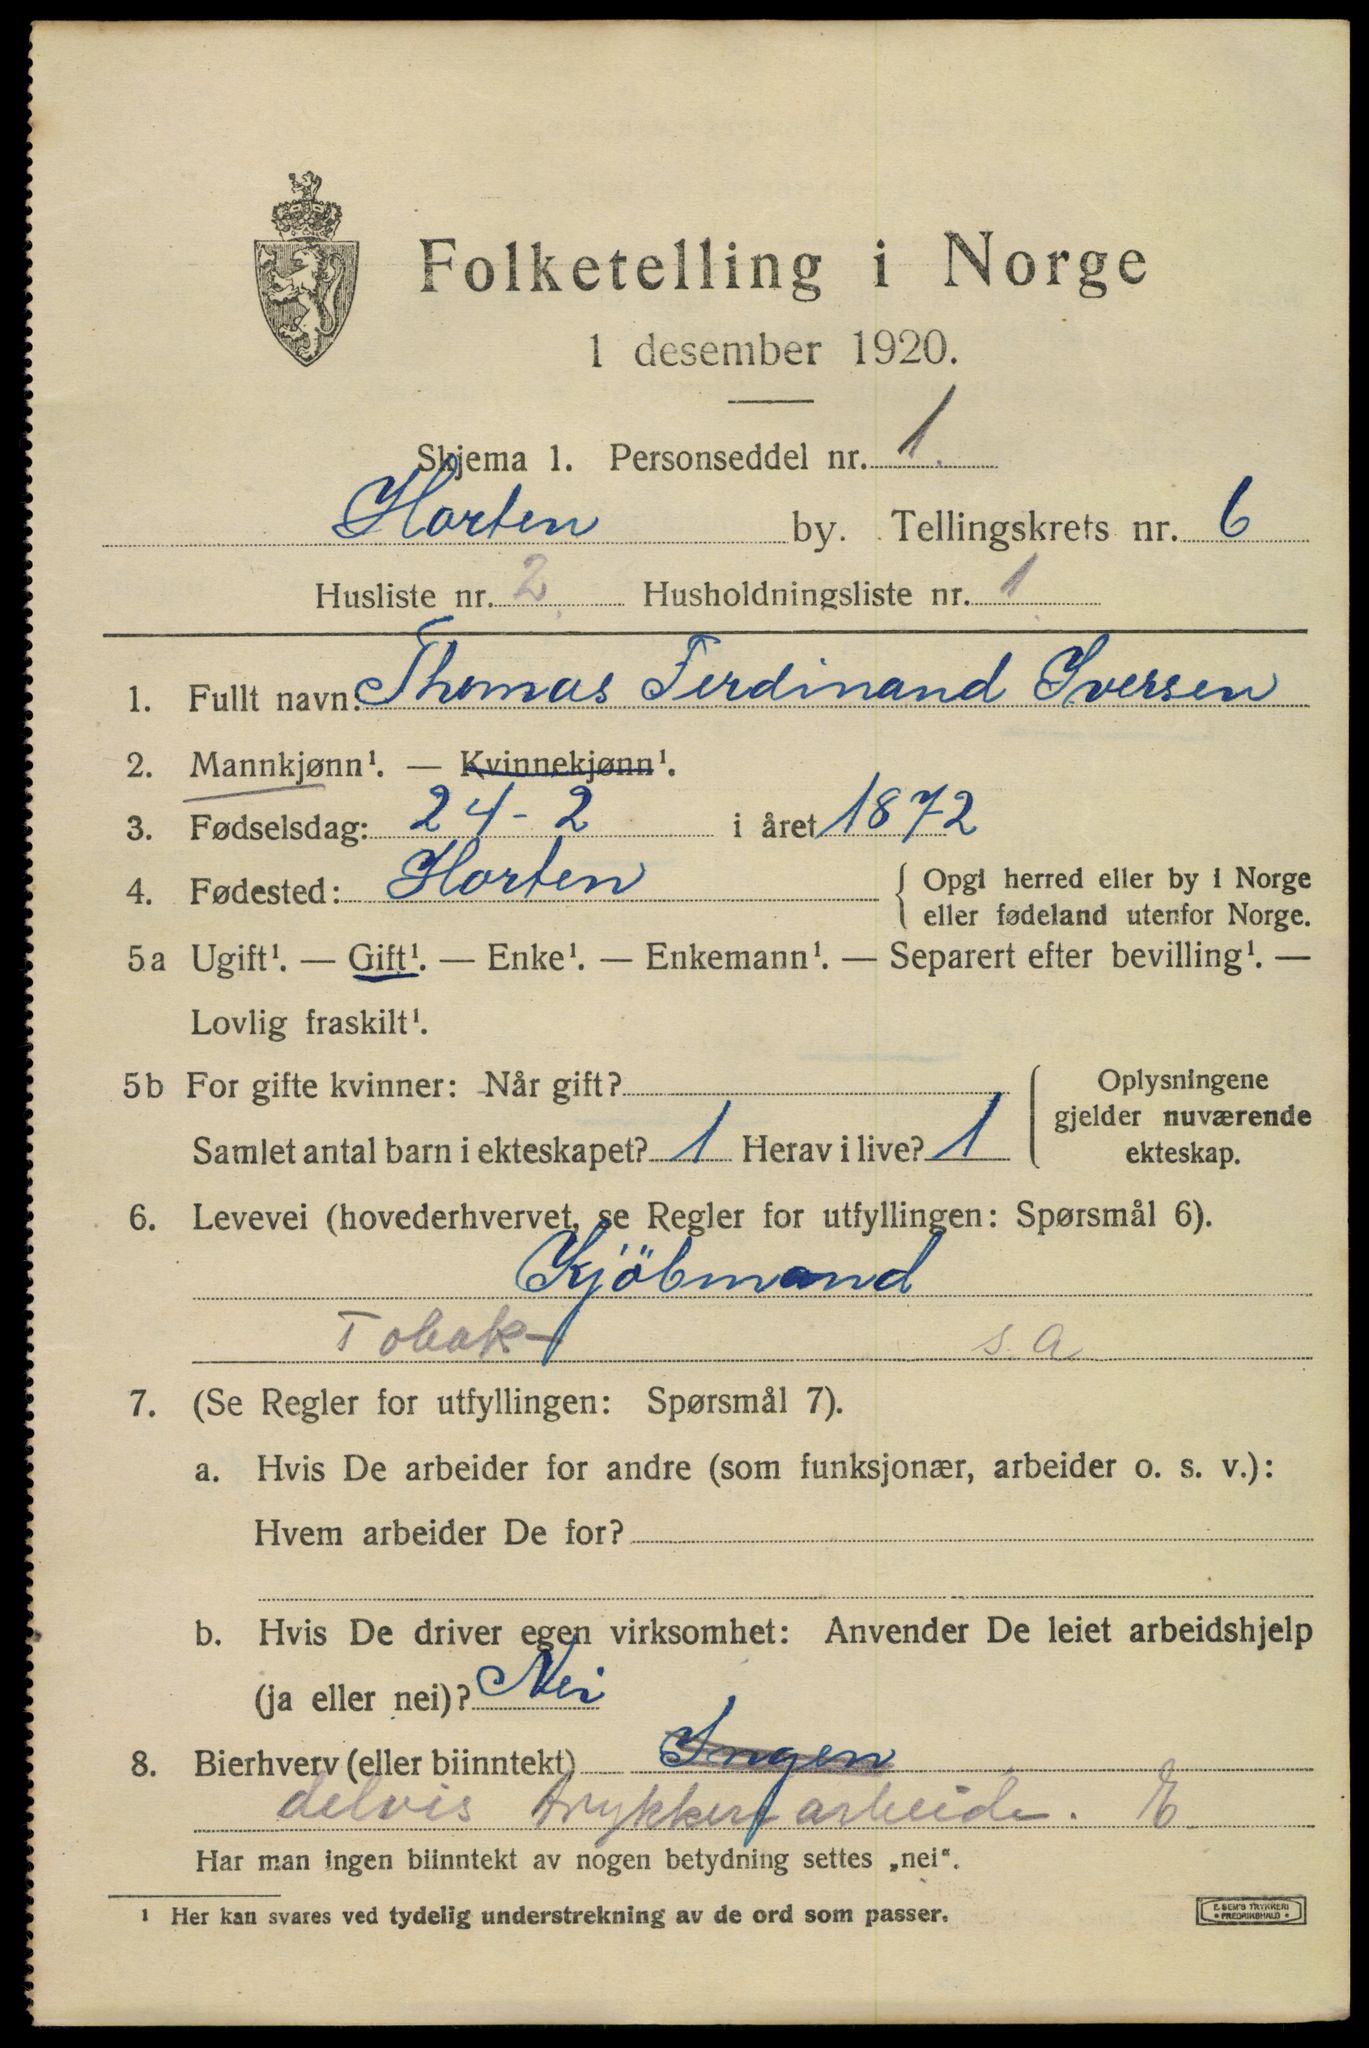 Folketelling i Norge
1 desember 1920.
Skjema 1. Personseddel nr. 1.
Horten by. Tellingskrets nr. 6
Husliste nr. 2. Husholdningsliste nr. 1.
1. Fullt navn: Thomas Ferdinand Iversen
2. Mannkjønn¹. — Kvinnekjønn¹.
3. Fødselsdag: 24-2 i året 1872
4. Fødested: Horten { Opgi herred eller by i Norge
eller fødeland utenfor Norge.
5a Ugift¹. — Gift¹. — Enke¹. — Enkemann¹. — Separert efter bevilling¹. —
Lovlig fraskilt¹.
5b For gifte kvinner: Når gift?
Samlet antal barn i ekteskapet? 1 Herav i live? 1
Oplysningene
gjelder nuværende
ekteskap.
6. Levevei (hovederhvervet, se Regler for utfyllingen: Spørsmål 6).
Kjöbmand
Tobak s.a
7. (Se Regler for utfyllingen: Spørsmål 7).
a. Hvis De arbeider for andre (som funksjonær, arbeider o. s. v.):
Hvem arbeider De for?
b. Hvis De driver egen virksomhet: Anvender De leiet arbeidshjelp
(ja eller nei)? Nei
8. Bierhverv (eller biinntekt) Ingen
delvis trykkeriarbeide. E.
Har man ingen biinntekt av nogen betydning settes „nei“.
¹ Her kan svares ved tydelig understrekning av de ord som passer.
E. SEM'S TRYKKERI
• FREDRIKSHALD •